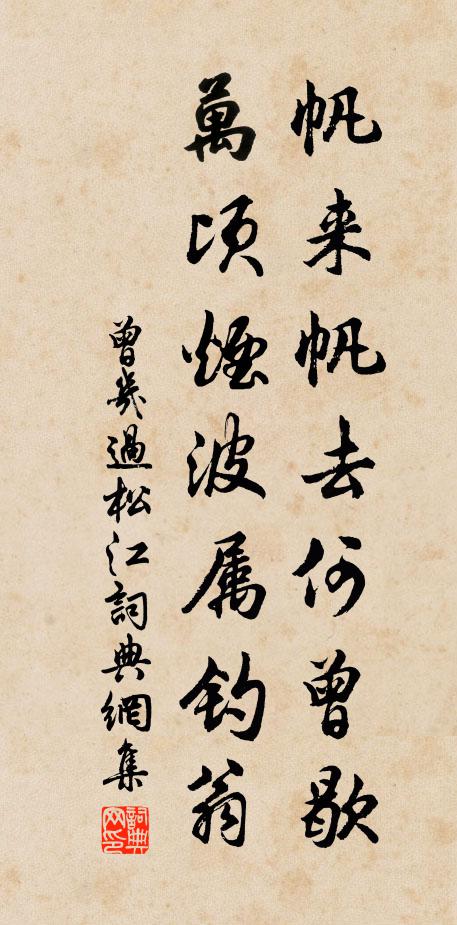 帆来帆去何曾歇
萬頃煙波属钓翁
曾幾過松江詞典網集
詞典网印